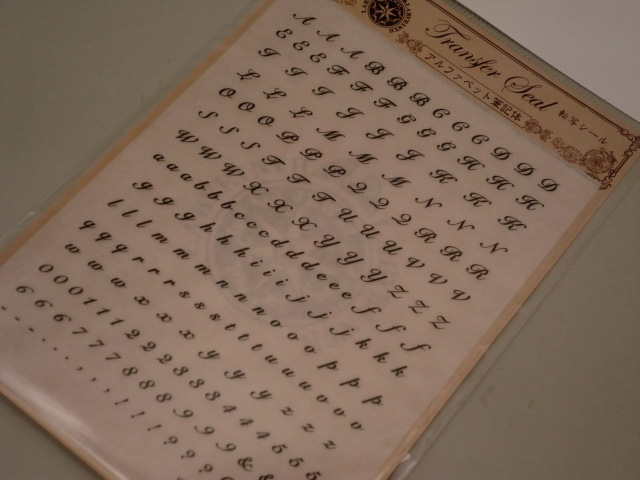 Transfer Seal 転写シール
アルファベット筆記体
A A A B B B C C C D D D
E E E F F F G G G H H H
I I I J J J K K K
L L L M M M N N N
O O O P P P Q Q Q R R R
S S S T T T U U U V V V
W W W X X X Y Y Y Z Z Z
a a a b b b c c c d d d e e e f f f
g g g h h h i i i j j j k k k
l l l m m m n n n o o o p p p
q q q r r r s s s t t t u u u v v v
w w w x x x y y y z z z
0 0 0 1 1 1 2 2 2 3 3 3 4 4 4 5 5 5
6 6 6 7 7 7 8 8 8 9 9 9 & &
! ! ! ? ? ?